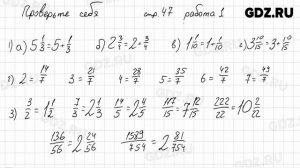 GDZ.RU
Проверьте себя стр. 47 работа 1
1) а) 5 1/3 = 5 + 1/3 б) 2 3/4 = 2 + 3/4 в) 1 1/10 = 1 + 1/10 г) 3 10/15 = 3 + 10/15
2) 2 = 14/7 3 = 21/7 4 = 28/7 5 = 35/7 6 = 42/7 7 = 49/7
3) 3/2 = 1 1/2 7/3 = 2 1/3 14/5 = 2 4/5 117/15 = 7 12/15 222/22 = 10 2/22
136/56 = 2 24/56 1589/754 = 2 81/754
GDZ.RU